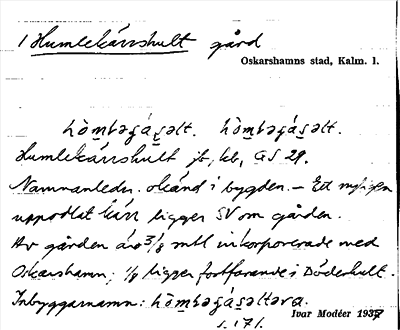 1 Humlekärrshult gård
Oskarshamns stad, Kalm. l.
hȯmbəgásəlt. hȯmbəgásəlt.
Humlekärrshult jb, kb, GS 29.
Namnanledn. okänd i bygden. – Ett nyligen
uppodlat kärr ligger SV om gården.
Av gården äro 3/8 mtl inkorporerade med
Oskarshamn; 1/8 ligger fortfarande i Döderhult.
Inbyggarnamn: hȯmbəgásəltara.
Ivar Modéer 1937
s. 171.